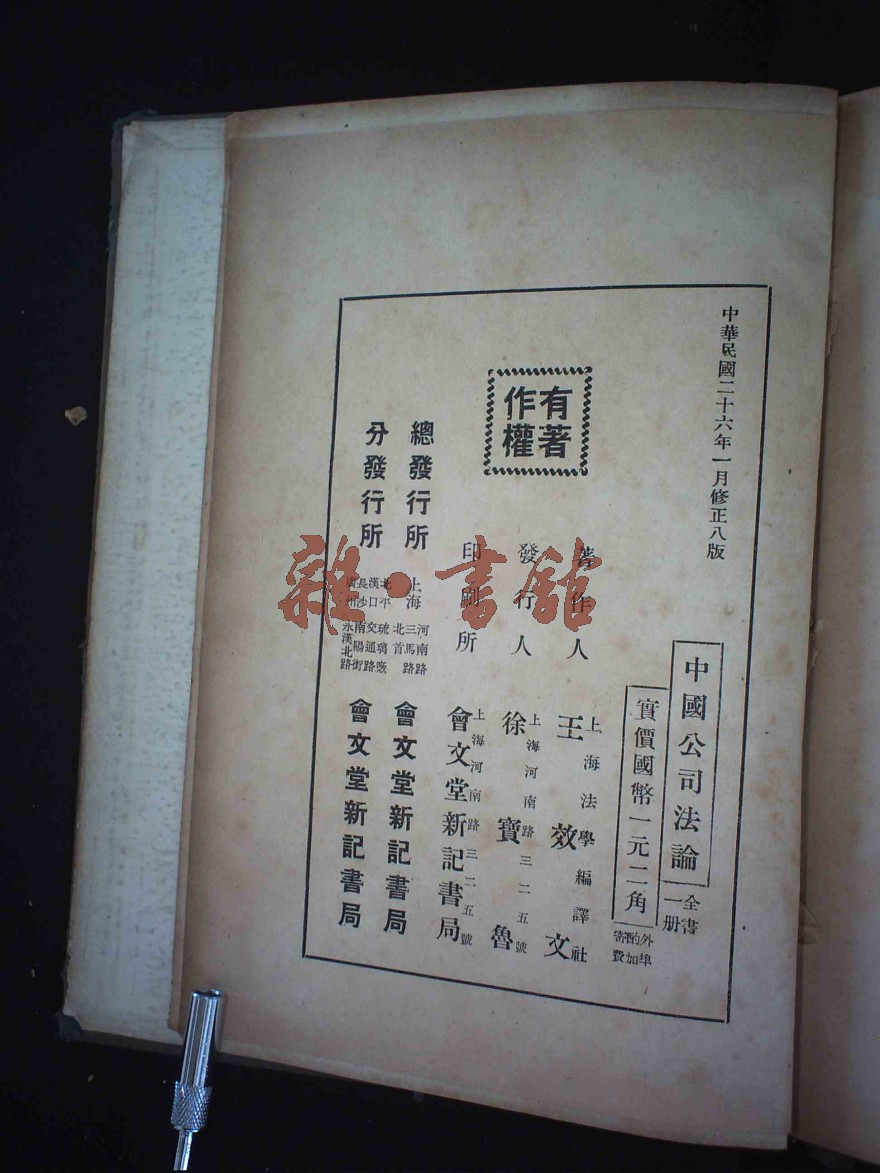 中華民國二十六年一月修正八版
中國公司法論
全書
一册
實價國幣一元二角
外埠
酌加
寄費
有著
作權
著作人
上海法學編譯社
王效文
發行人
上海河南路三二五號
徐寶魯
印刷所
上海河南路三二五號
會文堂新記書局
總發行所
上海
河南路
三馬路
北首
會文堂新記書局
分發行所
北平
琉璃廠
漢口
交通路
長沙
南陽街
廣州
永漢北路
會文堂新記書局
雜·書館